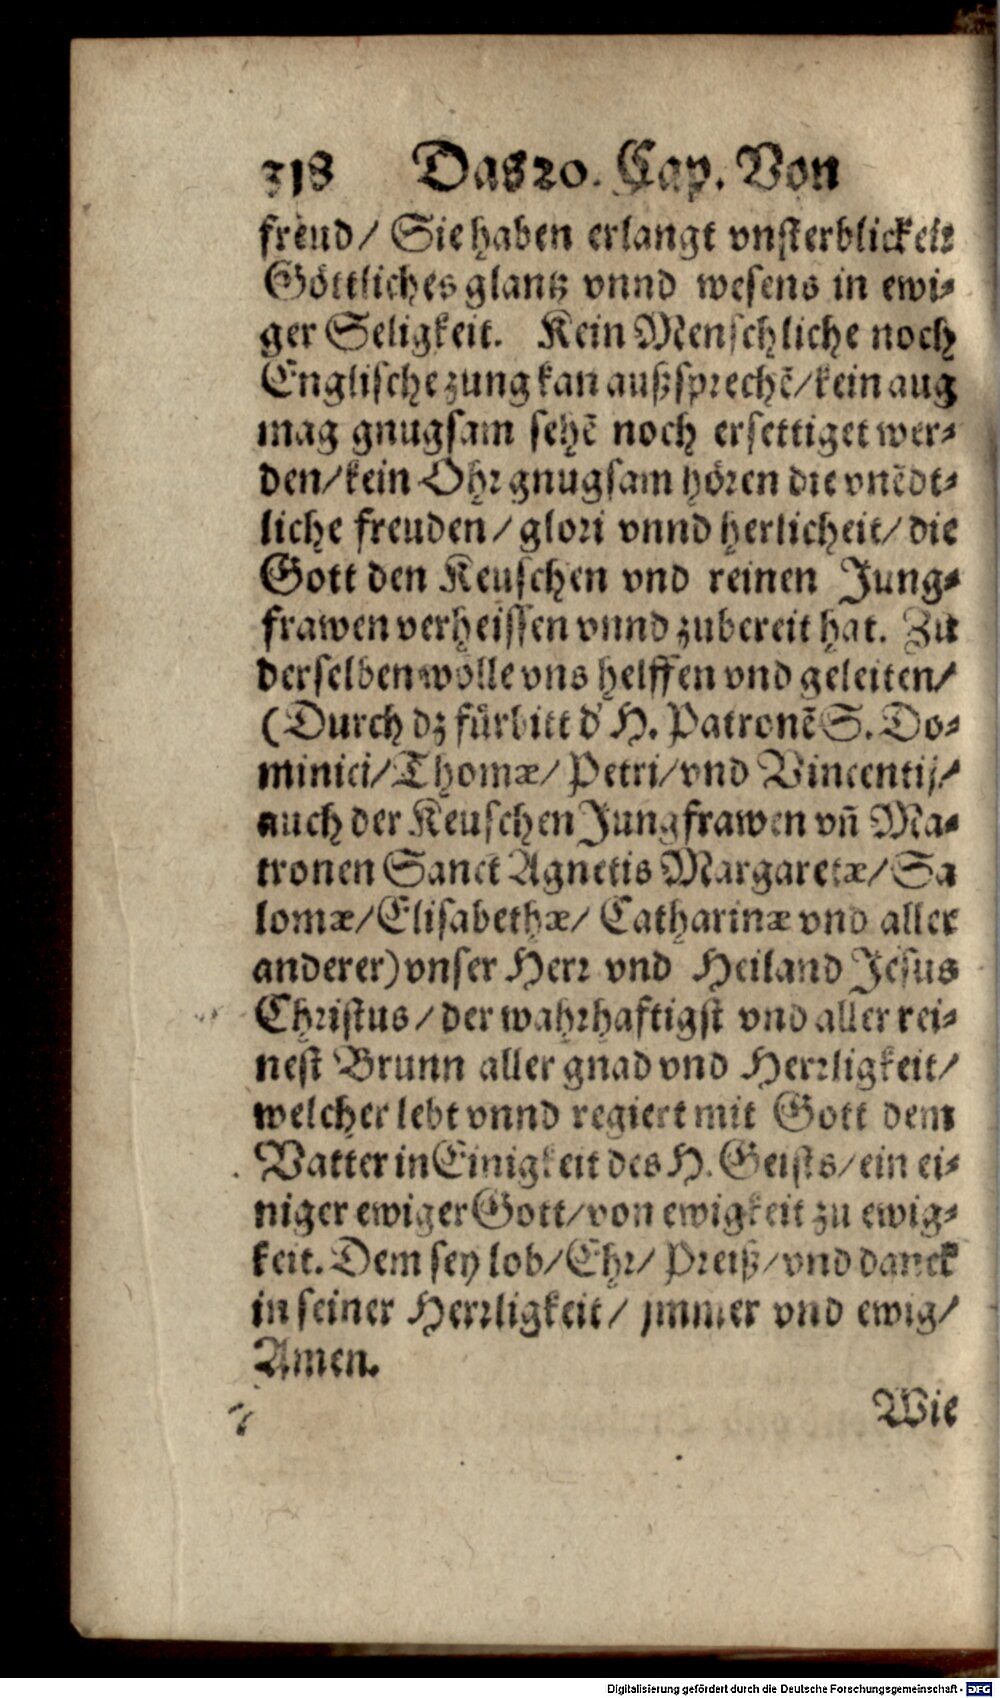 318 Das 20. Cap. Von
freud / Sie haben erlangt vnsterblickeit
Göttliches glantz vnnd wesens in ewi-
ger Seligkeit. Kein Menschliche noch
Englische zung kan außsprechē / kein aug
mag gnugsam sehē noch ersettiget wer-
den / kein Ohr gnugsam hören die vnēdt-
liche freuden / glori vnnd herlicheit / die
Gott den Keuschen vnd reinen Jung-
frawen verheissen vnnd zubereit hat. Zu
derselben wölle vns helffen vnd geleiten /
(Durch dz fürbitt d' H. Patronē S. Do-
minici / Thomæ / Petri / vnd Vincentij /
auch der Keuschen Jungfrawen vn̄ Ma-
tronen Sanct Agnetis Margaretæ / Sa
lomæ / Elisabethæ / Catharinæ vnd aller
anderer) vnser Herr vnd Heiland Jesus
Christus / der wahrhaftigst vnd aller rei-
nest Brunn aller gnad vnd Herrligkeit /
welcher lebt vnnd regiert mit Gott dem
Vatter in Einigkeit des H. Geists / ein ei-
niger ewiger Gott / von ewigkeit zu ewig-
keit. Dem sey lob / Ehr / Preiß / vnd danck
in seiner Herrligkeit / jmmer vnd ewig /
Amen.
Wie
Digitalisierung gefördert durch die Deutsche Forschungsgemeinschaft - DFG